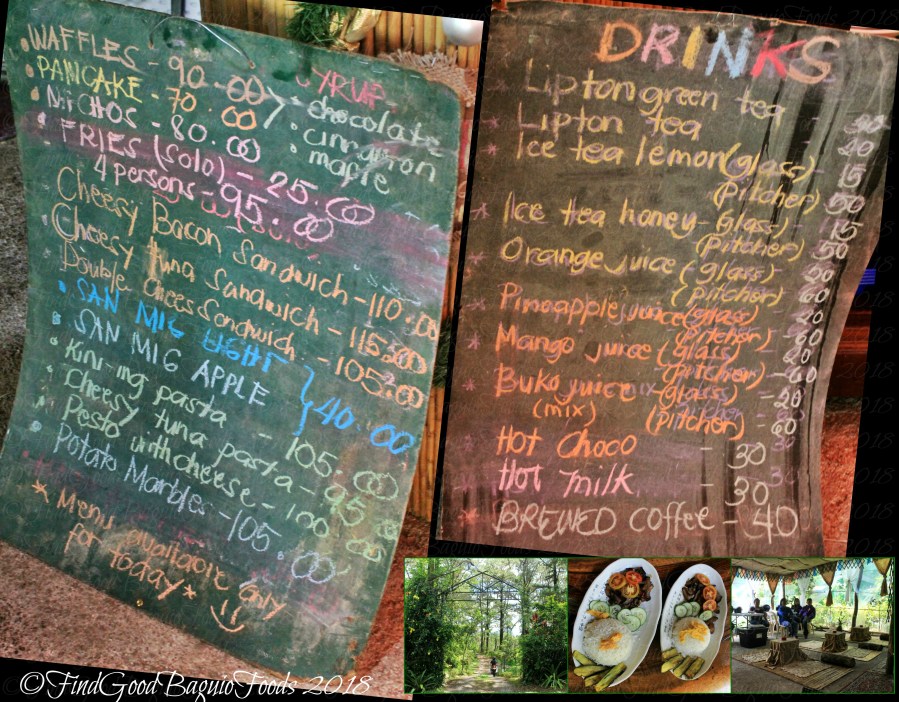 WAFFLES - 90.00
PANCAKE - 70.00
NACHOS - 80.00
SYRUP
• chocolate
• cinnamon
• maple
FRIES (solo) - 25.00
4 persons - 95.00
Cheesy Bacon Sandwich - 110.00
Cheesy tuna Sandwich - 115.00
Double Cheese Sandwich - 105.00
SAN MIG LIGHT
SAN MIG APPLE
40.00
Kini-ing pasta - 105.00
Cheesy tuna pasta - 95.00
Pesto with cheese - 100.00
Potato Marbles - 105.00
* Menu available only
for today *
DRINKS
* Lipton green tea - 30
* Lipton tea - 20
* Ice tea lemon (glass) - 15
(Pitcher) 50
* Ice tea honey - (glass) 15
(Pitcher) 50
* Orange juice (glass) 20
(pitcher) 60
* Pineapple juice (glass) 20
(pitcher) - 60
* Mango juice (glass) - 20
(pitcher) - 60
* Buko juice (glass) - 20
(mix) (pitcher) 60
* Hot Choco - 30
* Hot milk - 30
* BREWED coffee - 40
©FindGoodBaguioFoods 2018